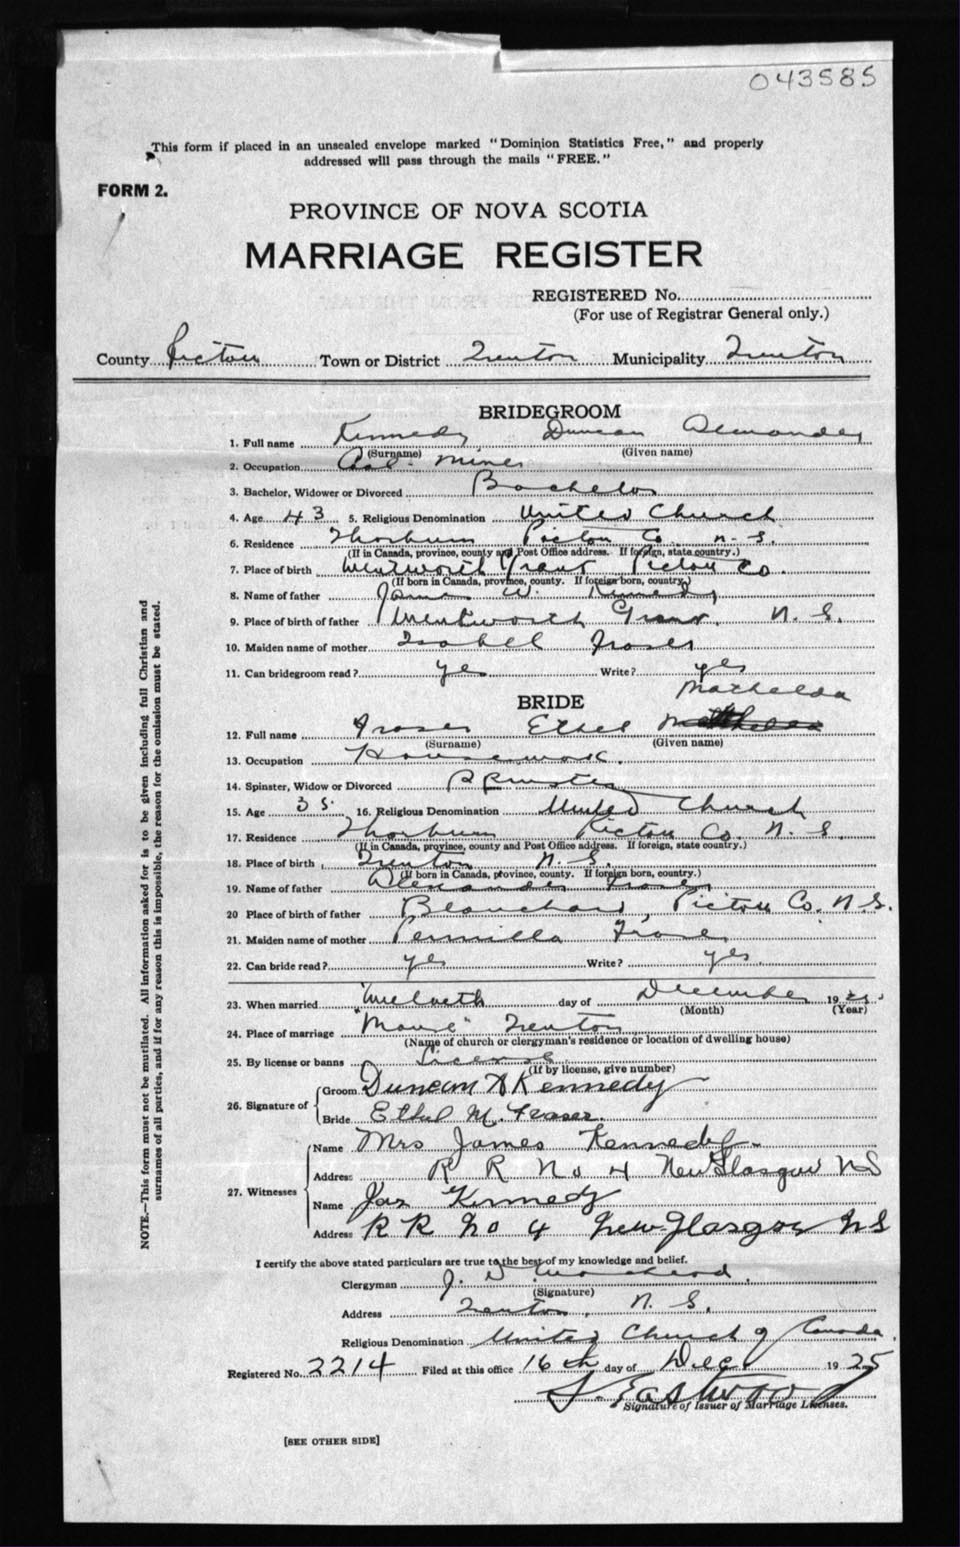 043585
This form if placed in an unsealed envelope marked "Dominion Statistics Free," and properly
addressed will pass through the mails "FREE."
FORM 2.
PROVINCE OF NOVA SCOTIA
MARRIAGE REGISTER
REGISTERED No.
(For use of Registrar General only.)
County Pictou Town or District Trenton Municipality Trenton
BRIDEGROOM
1. Full name Kennedy Duncan
(Surname) (Given name)
2. Occupation Coal Miner
3. Bachelor, Widower or Divorced Bachelor
4. Age 43 5. Religious Denomination United Church
6. Residence Thorburn Pictou Co N.S.
(If in Canada, province, county and Post Office address. If foreign, state country.)
7. Place of birth Wentworth Grant Pictou Co.
(If born in Canada, province, county. If foreign born, country.)
8. Name of father James W. Kennedy
9. Place of birth of father Wentworth Grant. N.S.
10. Maiden name of mother Isabell Fraser
11. Can bridegroom read? yes Write? yes
BRIDE
Mathelda
12. Full name Fraser Ethel
(Surname) (Given name)
13. Occupation Housework.
14. Spinster, Widow or Divorced Spinster
15. Age 35 16. Religious Denomination United Church
17. Residence Thorburn Pictou Co. N.S.
(If in Canada, province, county and Post Office address. If foreign, state country.)
18. Place of birth Trenton N.S.
(If born in Canada, province, county. If foreign born, country.)
19. Name of father Alexander Fraser
20 Place of birth of father Blanchard, Pictou Co. N.S.
21. Maiden name of mother Fraser
22. Can bride read? yes Write? yes
23. When married Twelveth day of December 1925
(Month) (Year)
24. Place of marriage "Manse" Trenton
(Name of church or clergyman's residence or location of dwelling house)
25. By license or banns License
(If by license, give number)
26. Signature of Groom Duncan A Kennedy
Bride Ethel M. Fraser.
27. Witnesses Name Mrs James Kennedy
Address R R No 4 New Glasgow NS
Name Jas Kennedy
Address R R No 4 New Glasgow NS
I certify the above stated particulars are true to the best of my knowledge and belief.
Clergyman J.
(Signature)
Address Trenton, N.S.
Religious Denomination United Church of Canada.
Registered No. 2214 Filed at this office 16th day of Dec 1925
Eastwood
Signature of Issuer of Marriage Licenses.
[SEE OTHER SIDE]
NOTE.—This form must not be mutilated. All information asked for is to be given including full Christian and
surnames of all parties, and if for any reason this is impossible, the reason for the omission must be stated.